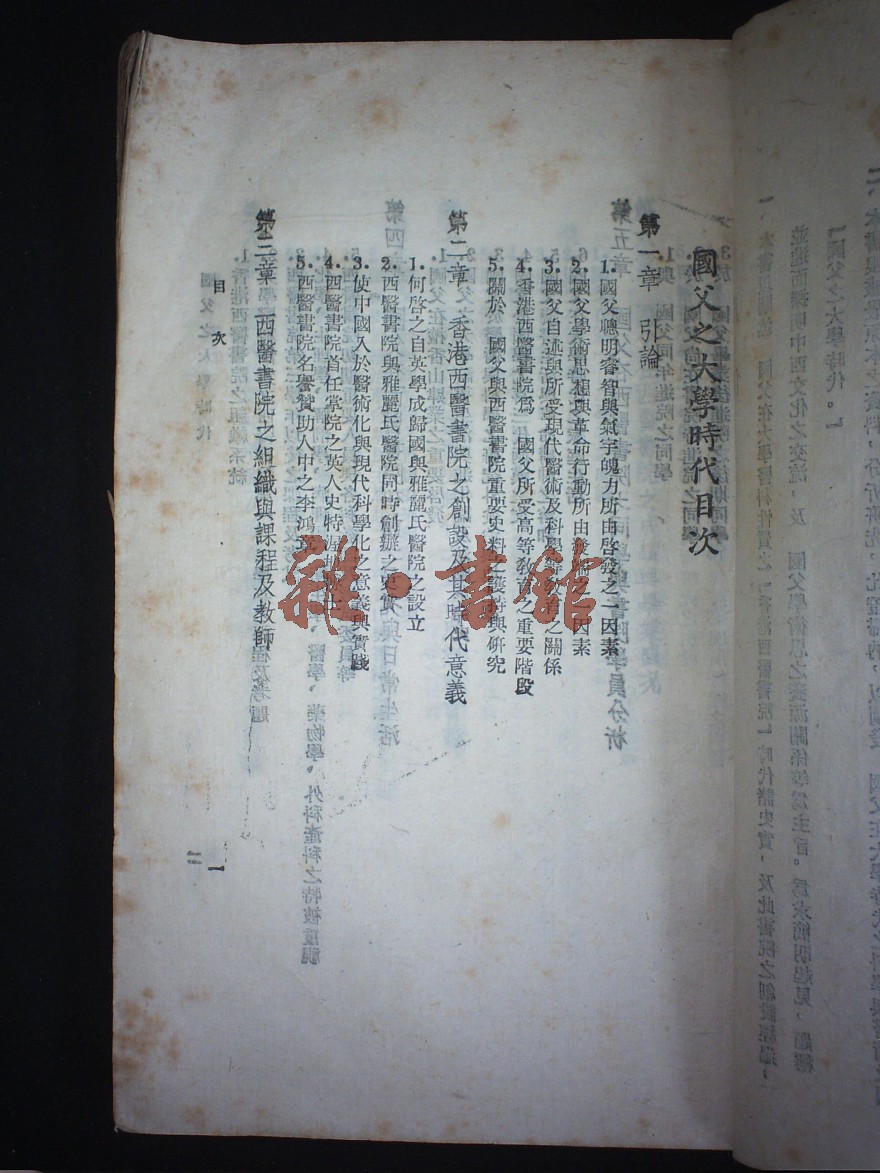 國父之大學時代目次
第一章 引論
1. 國父聰明睿智與氣宇魄力所由啓發之一因素
2. 國父學術思想與革命行動所由
之一因素
3. 國父自述與所受現代醫術及科學
之關係
4. 香港西醫書院爲 國父所受高等教育之重要階段
5. 關於 國父與西醫書院重要史料之
與研究
第二章 香港西醫書院之創設及其時代意義
1. 何啓之自英學成歸國與雅麗氏醫院之設立
2. 西醫書院與雅麗氏醫院同時創辦之史實
3. 使中國入於醫術化與現代科學化之意義與實踐
4. 西醫書院首任掌院之英人史特
5. 西醫書院名譽贊助人中之李鴻章
第三章 西醫書院之組織與課程及教師
目 次
一
雜·書館